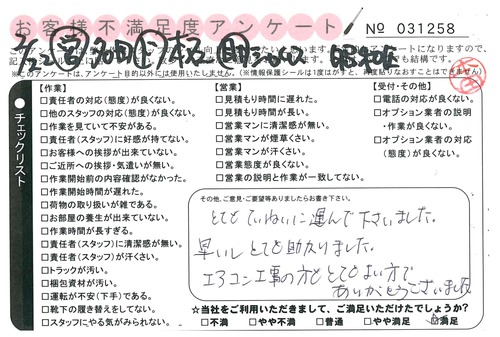 お客様不満足度アンケート
No 031258
(※このアンケートは、アンケート目的以外には使用いたしません。)(※情報保護シールは1度はがすと、再度貼りなおすことはできません)
チェックリスト
【作業】
□責任者の対応(態度)が良くない。
□他のスタッフの対応(態度)が良くない。
□作業を見ていて不安がある。
□責任者(スタッフ)に好感が持てない。
□お客様への挨拶が出来ていない。
□ご近所への挨拶・気遣いが無い。
□作業開始前の内容確認がなかった。
□作業開始時間が遅れた。
□荷物の取り扱いが雑である。
□お部屋の養生が出来ていない。
□作業時間が長すぎる。
□責任者(スタッフ)に清潔感が無い。
□責任者(スタッフ)が汗くさい。
□トラックが汚い。
□梱包資材が汚い。
□運転が不安(下手)である。
□靴下の履き替えをしてない。
□スタッフにやる気がみられない。
【営業】
□見積もり時間に遅れた。
□見積もり時間が長い。
□営業マンに清潔感が無い。
□営業マンが煙草くさい。
□営業マンが汗くさい。
□営業態度が良くない。
□営業の説明と作業が一致してない。
【受付・その他】
□電話の対応が良くない。
□オプション業者の説明
・作業が良くない。
□オプション業者の対応
(態度)が良くない。
その他、ご意見・ご要望等ありましたらお書き下さい。
とてもていねいに運んで下さいました。
早いしとても助かりました。
エアコン工事の方もとてもよい方で
ありがとうございました
☆当社をご利用いただきまして、ご満足いただけたでしょうか?
□不満 □やや不満 □普通 □やや満足 ☑満足